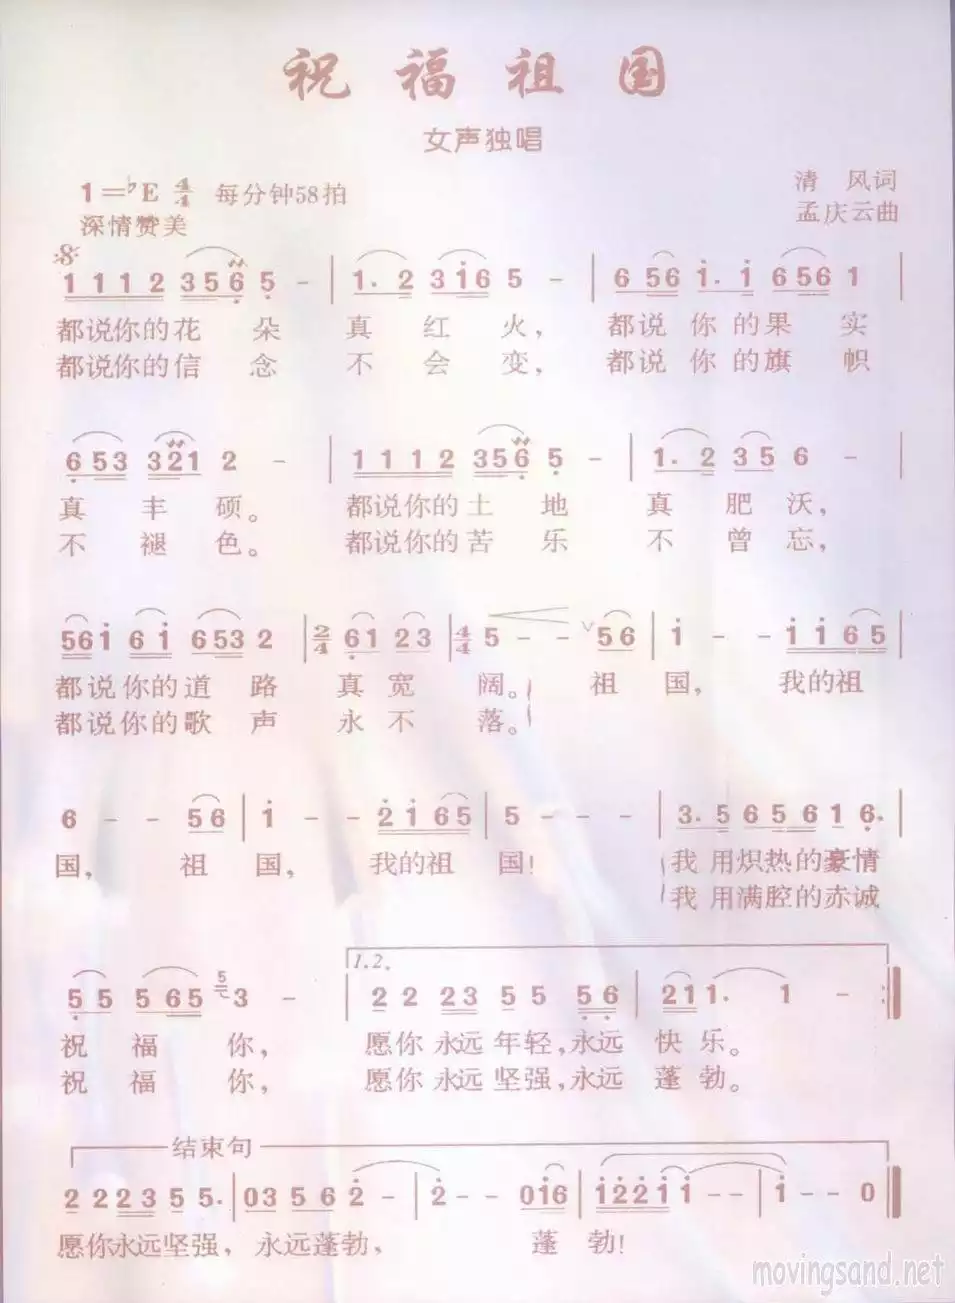 祝福祖国
女声独唱
1=♭E 4/4 每分钟58拍
清 风词
深情赞美
孟庆云曲
1 1 1 2 3 5 6 5 - | 1. 2 3 1 6 5 - | 6 5 6 1. 1 6 5 6 1 |
都说你的花 朵 真 红 火, 都说 你 的果 实
都说你的信 念 不 会 变, 都说 你 的旗 帜
6 5 3 3 2 1 2 - | 1 1 1 2 3 5 6 5 - | 1. 2 3 5 6 - |
真 丰 硕。 都说你的土 地 真 肥 沃,
不 褪 色。 都说你的苦 乐 不 曾 忘,
5 6 1 6 1 6 5 3 2 | 2/4 6 1 2 3 | 4/4 5 - - ∨ 5 6 | 1 - - 1 1 6 5 |
都说你的道 路 真 宽 阔。 祖 国, 我的祖
都说你的歌 声 永 不 落。
6 - - 5 6 | 1 - - 2 1 6 5 | 5 - - - | 3. 5 6 5 6 1 6. |
国, 祖 国, 我的祖 国! 我 用炽热的豪情
我 用满腔的赤诚
1.2.
5 5 5 6 5 5 3 - | 2 2 2 3 5 5 5 6 | 2 1 1. 1 - :|
祝 福 你, 愿你 永远 年轻,永远 快 乐。
祝 福 你, 愿你 永远 坚强,永远 蓬 勃。
结束句
2 2 2 3 5 5. | 0 3 5 6 2 - | 2 - - 0 1 6 | 1 2 2 1 1 - - | 1 - - 0 |
愿你永远坚强, 永远蓬勃、 蓬 勃!
movingsand.net